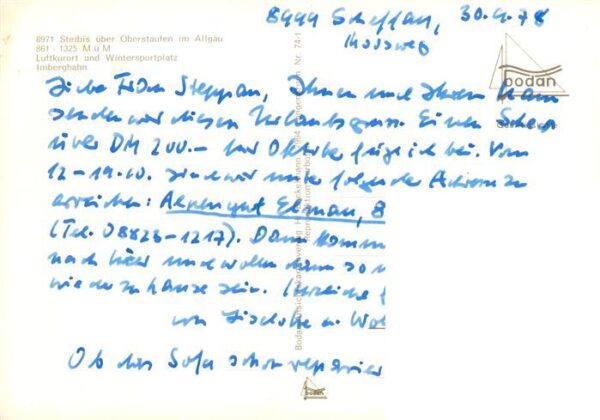 8999 Scheffau, 30.9.78
Moosweg
8971 Steibis über Oberstaufen im Allgäu
861 - 1325 M ü M
Luftkurort und Wintersportplatz
Imbergbahn
bodan
Liebe Frau Steppan, Ihnen und Ihrem Mann
senden wir diesen Urlaubsgruss. Einen Scheck
über DM 200.- für Oktober füge ich bei. Vom
12-19.10. sind wir unter folgender Adresse zu
erreichen: Alpengut Elmau, 8
(Tel. 08823-1217). Dann kommen
nach hier und wollen dann so
wieder zu hause sein. Herzliche
von Liselotte u.
Ob das Sofa schon reparier
bodan